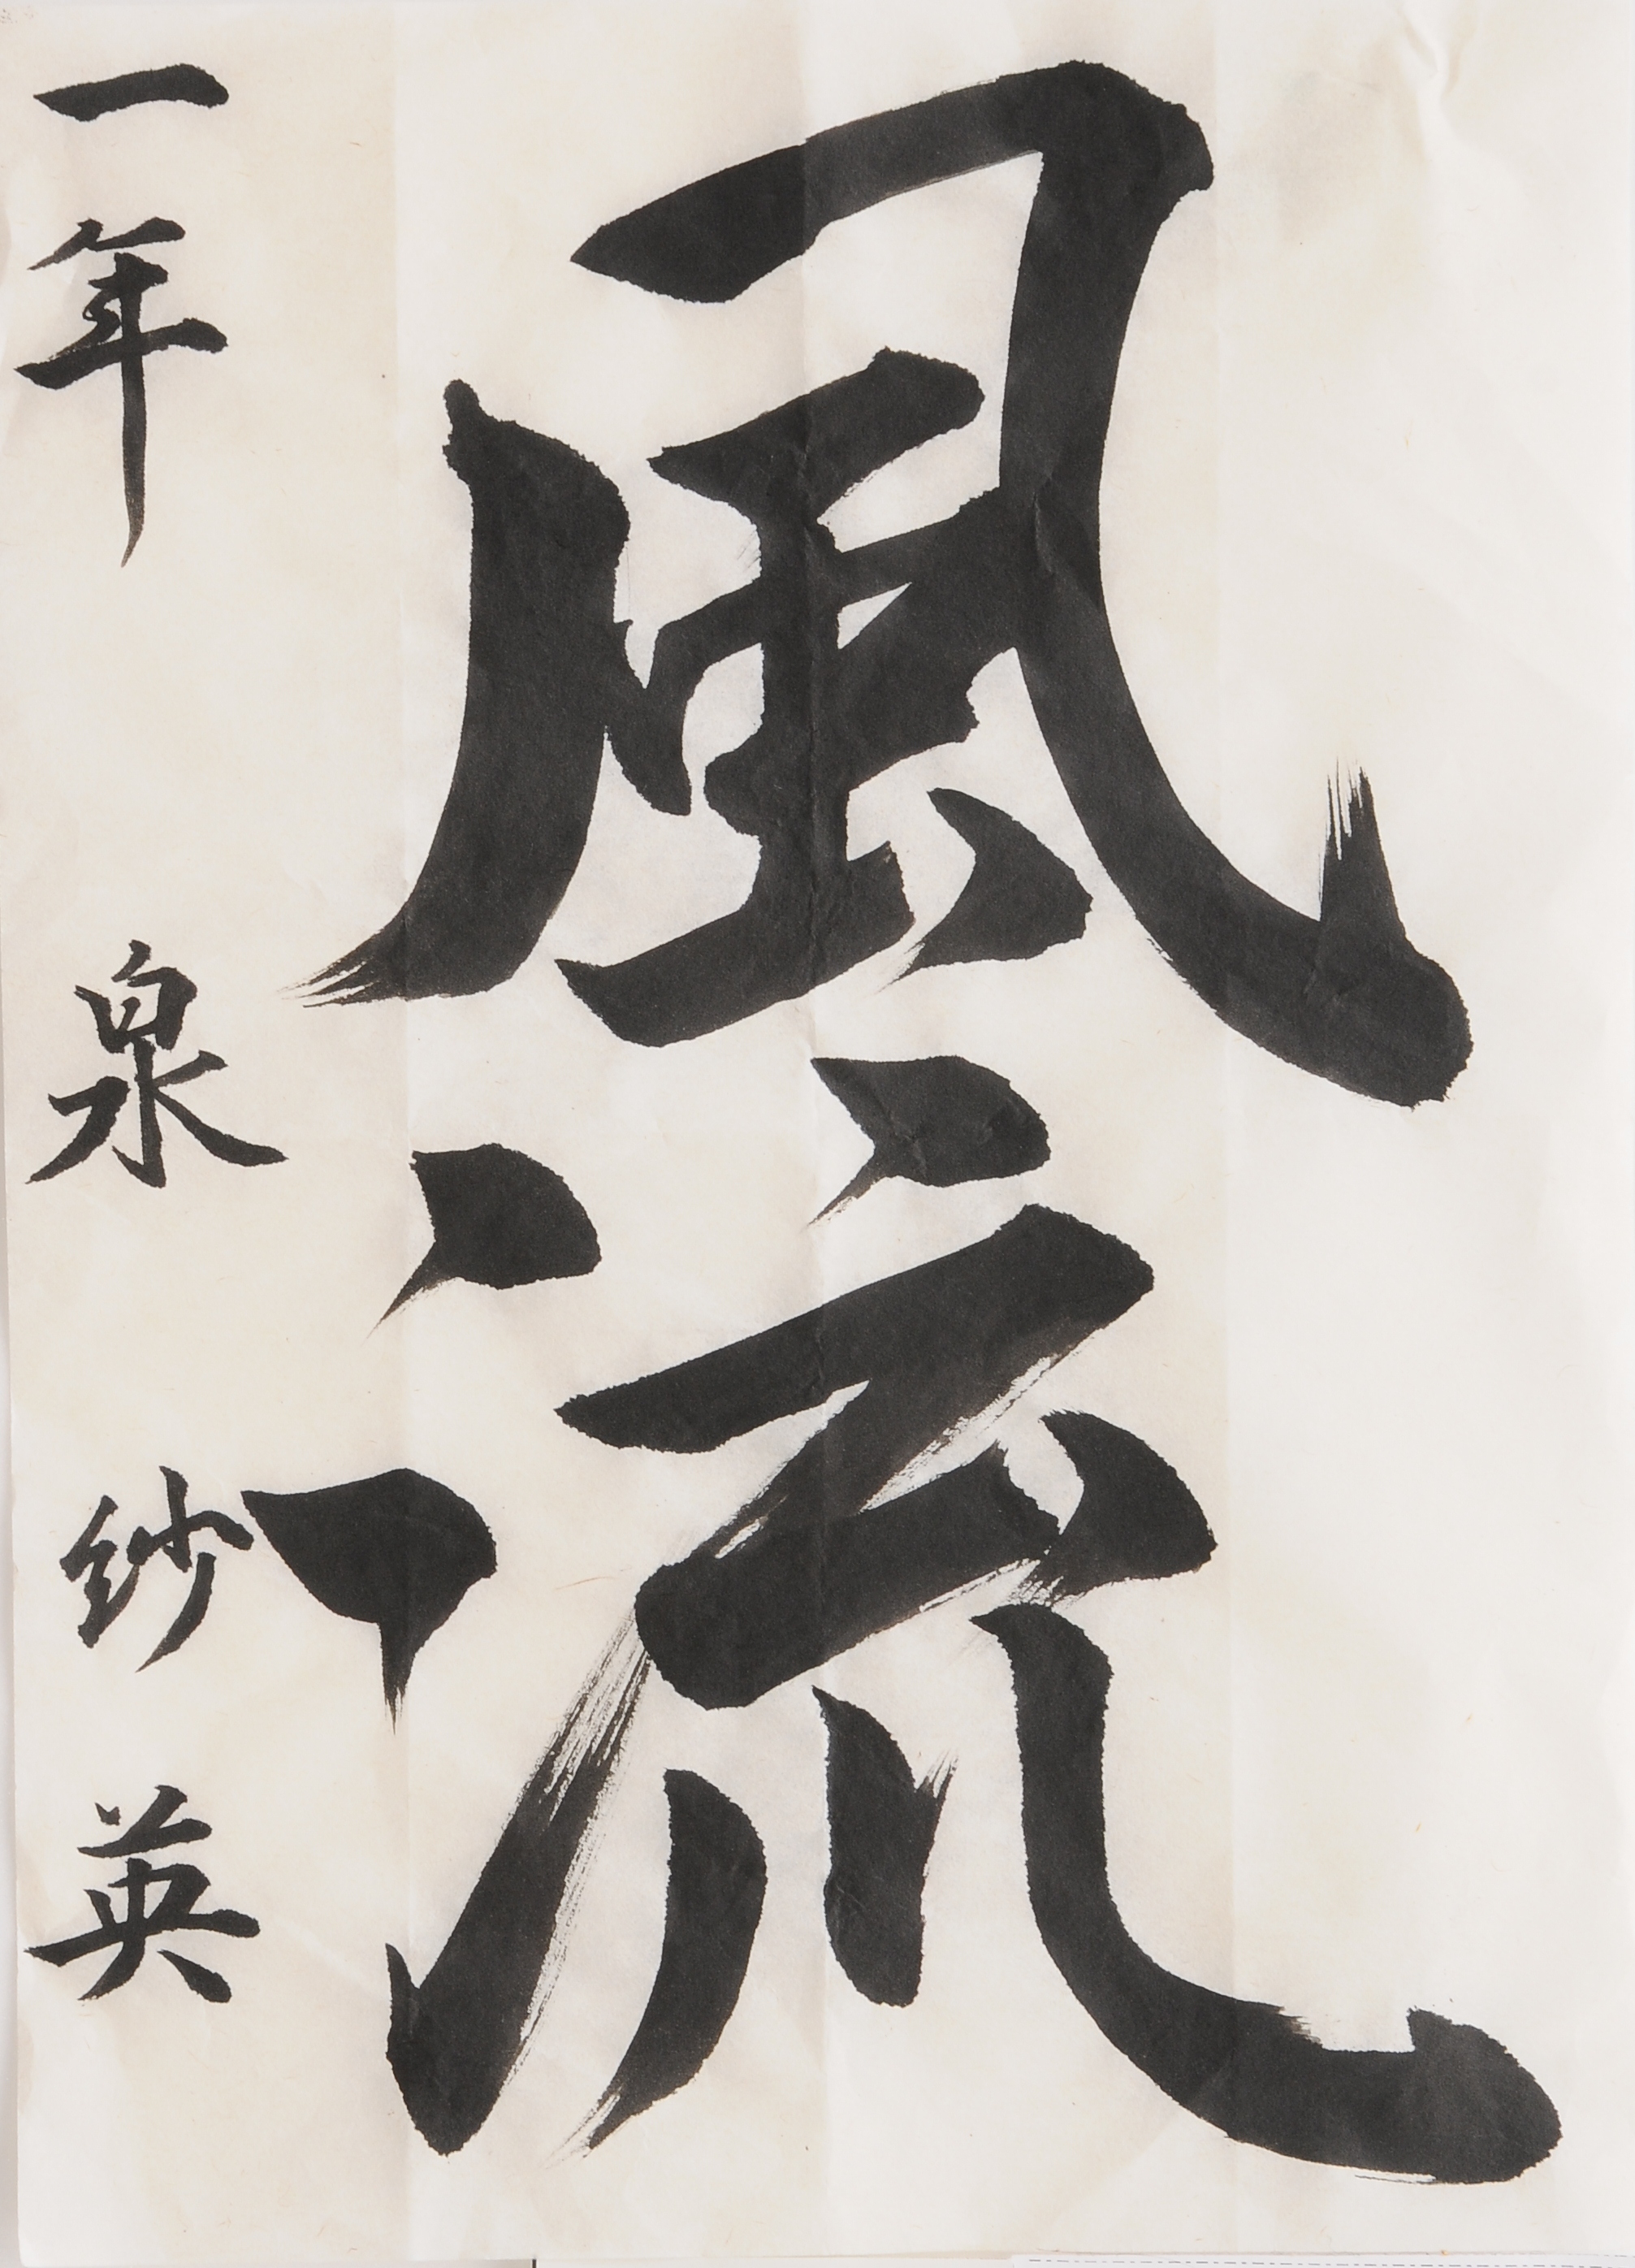 風流
一年 泉 紗英